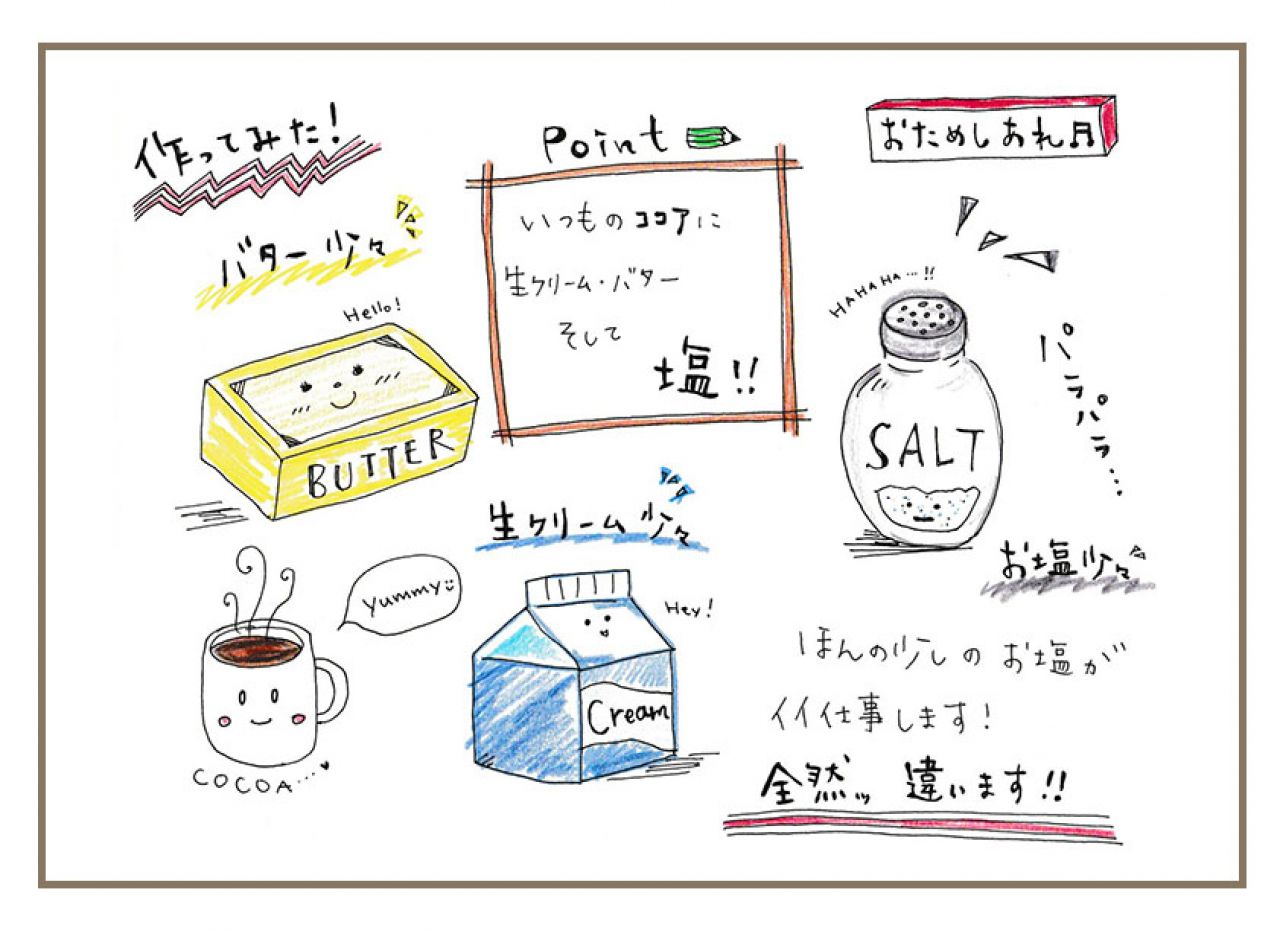 作ってみた!
バター少々
Hello!
BUTTER
Point
いつものココアに
生クリーム・バター
そして
塩!!
おためしあれ♬
HAHAHA…!!
SALT
パラパラ…
お塩少々
生クリーム少々
Hey!
Cream
yummy
COCOA…♥
ほんの少しのお塩が
イイ仕事します!
全然ッ違います!!